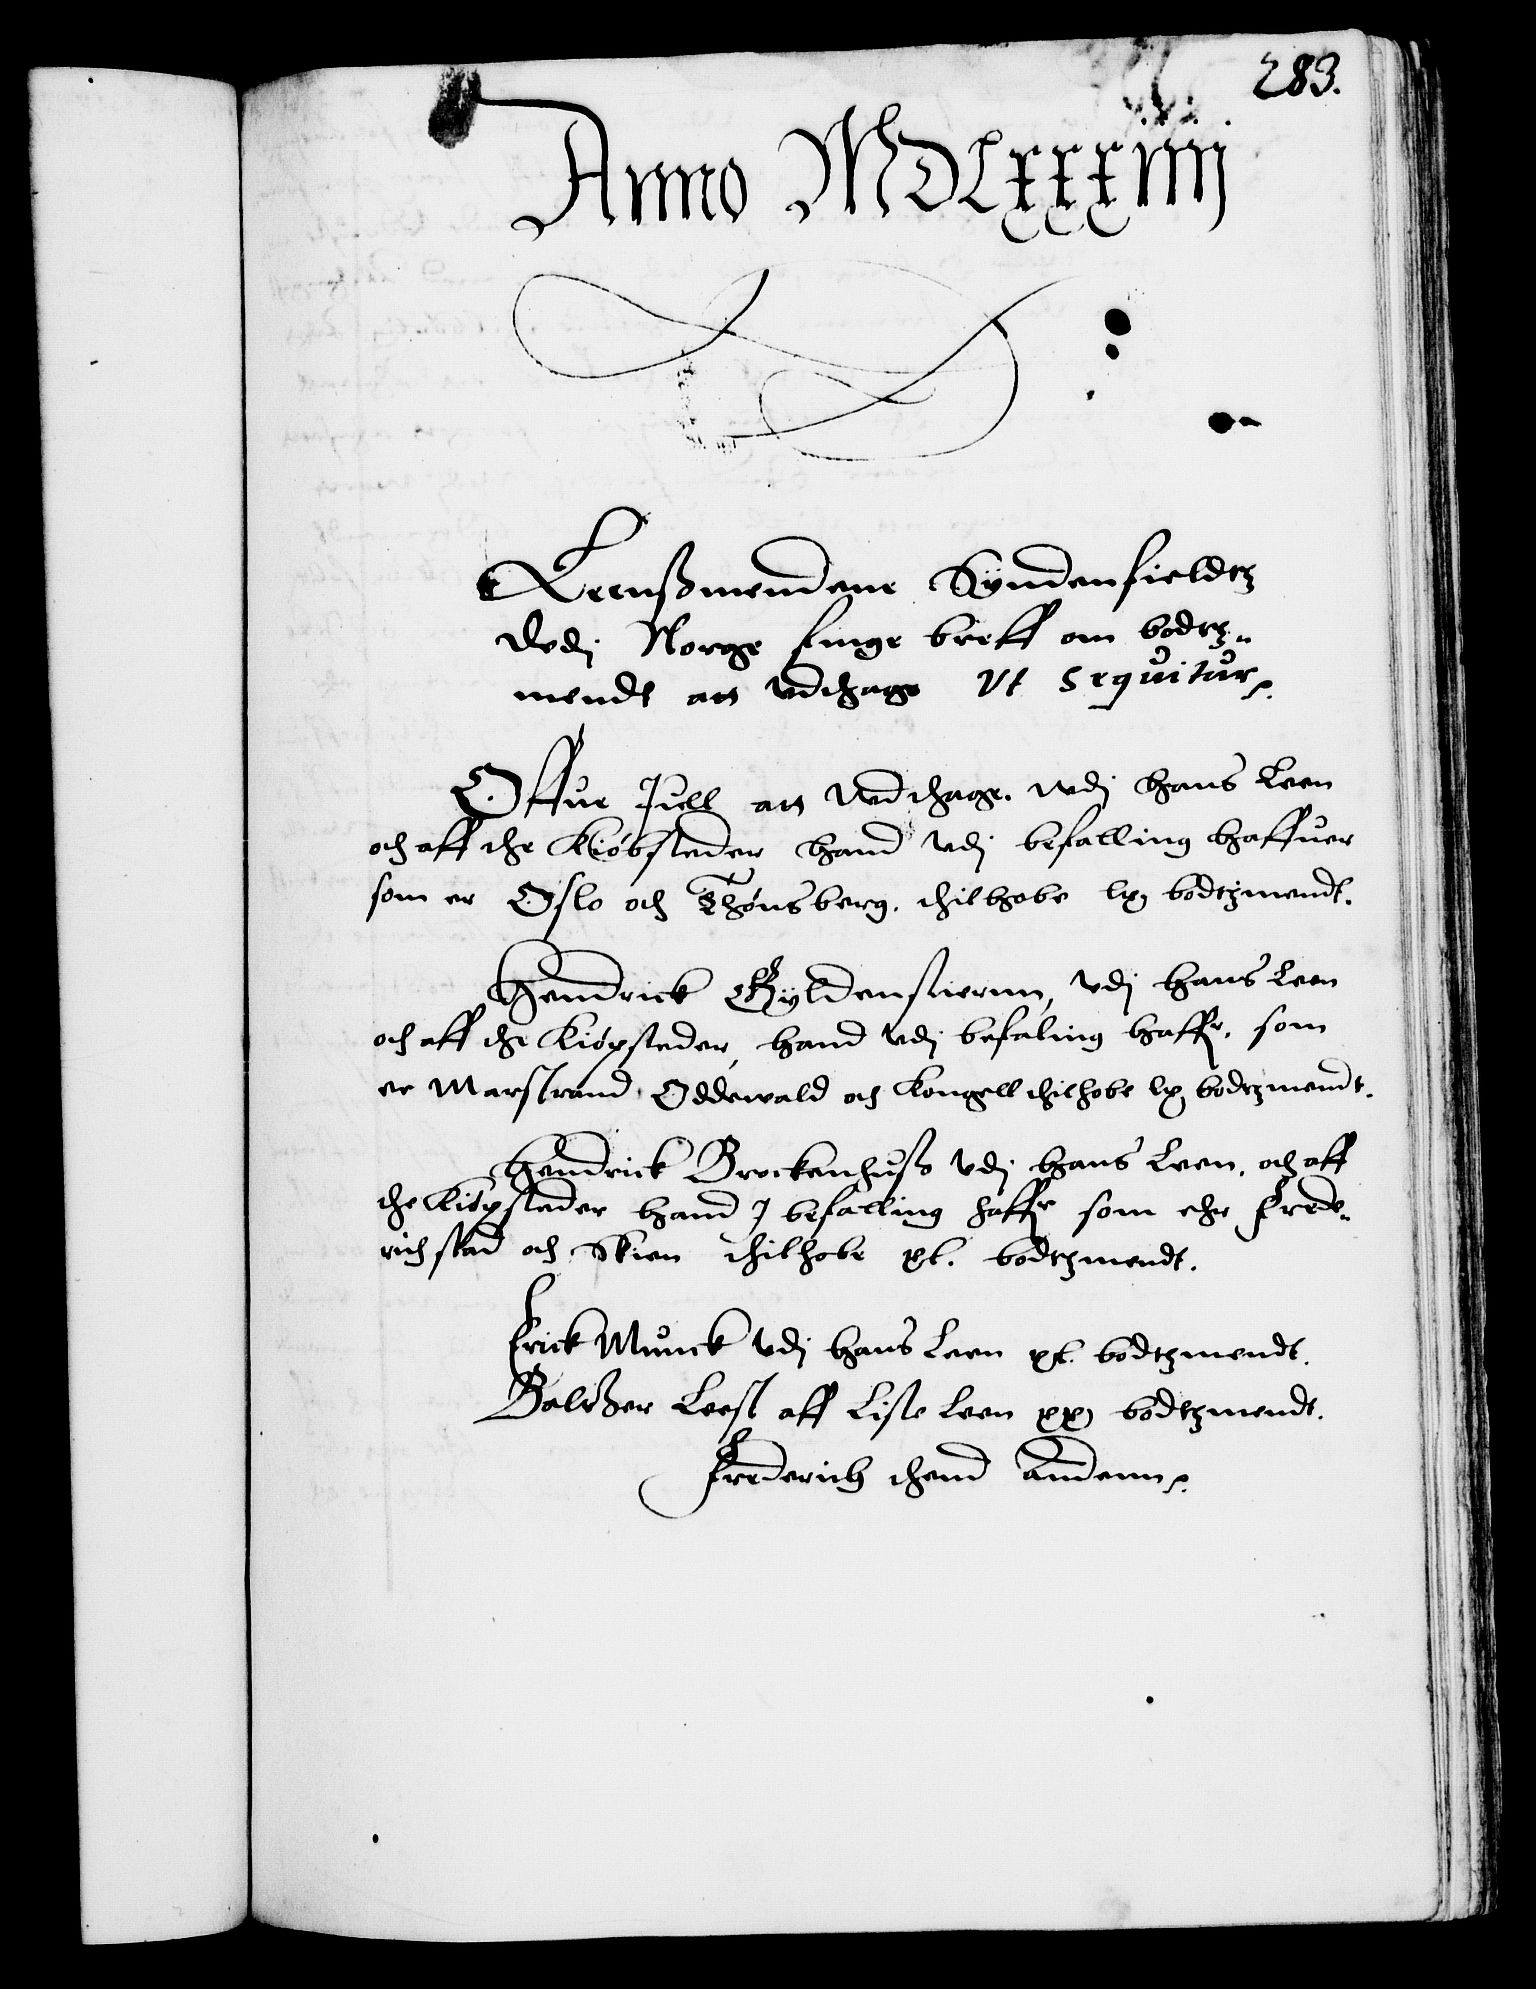 283.
Anno MDLxxxiiij
Leenßmendene Syndenfieldtz
Udj Norge finge breff om bodtz„
mendt att udthage Vt Sequitur.
Offue Juell att Udthage. udj hans Leen
och aff the Kiøbsteder hand udj befalling haffuer
som er Oslo och Thønsberg. thilhobe lx bodtzmendt.
Hendrick Gyldenstiernn, udj hans Leen
och aff the Kiøpsteder, hand udj befaling haffr. som
er Marstrand Oddewald och Kongell thilhobe lx bodtzmendt.
Hendrick Brockenhuss udj hans Leen. och aff
the Kiøpsteder hand J befalling haffr som ehr Frede„
richstad och Skien thilhobe xl. bodtzmendt.
Erick Munck udj hans Leen xl. bodtzmendt.
Baltzer Leest aff Liste Leen xx bodtzmendt.
Frederich thend Andenn.